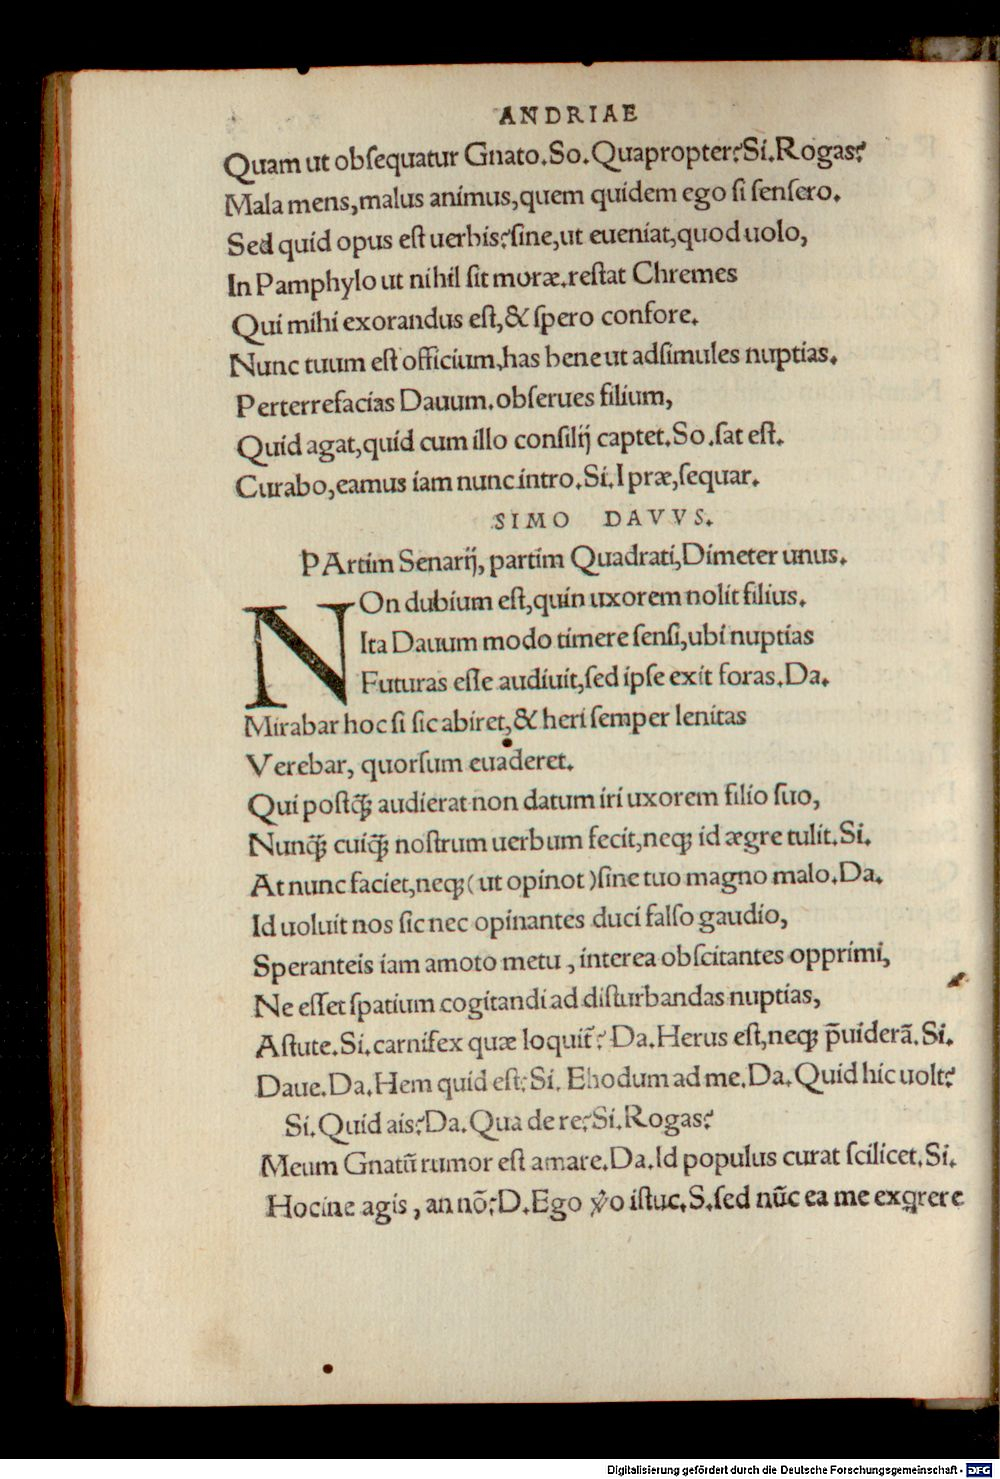 ANDRIAE
Quam ut obſequatur Gnato.So.Quapropter?Si.Rogas?
Mala mens,malus animus,quem quidem ego ſi ſenſero.
Sed quid opus eſt uerbis?ſine,ut eueniat,quod uolo,
In Pamphylo ut nihil ſit moræ.reſtat Chremes
Qui mihi exorandus eſt,& ſpero confore.
Nunc tuum eſt officium,has bene ut adſimules nuptias.
Perterrefacias Dauum.obſerues filium,
Quid agat,quid cum illo conſilij captet.So.ſat eſt.
Curabo,eamus iam nunc intro.Si.I præ,ſequar.
SIMO DAVVS.
PArtim Senarij, partim Quadrati,Dimeter unus.
NOn dubium eſt,quin uxorem nolit filius.
Ita Dauum modo timere ſenſi,ubi nuptias
Futuras eſſe audiuit,ſed ipſe exit foras.Da.
Mirabar hoc ſi ſic abiret,& heri ſemper lenitas
Verebar, quorſum euaderet.
Qui poſtq̃ꝫ audierat non datum iri uxorem filio ſuo,
Nunq̃ꝫ cuiq̃ꝫ noſtrum uerbum fecit,neqꝫ id ægre tulit.Si.
At nunc faciet,neqꝫ(ut opinot)ſine tuo magno malo.Da.
Id uoluit nos ſic nec opinantes duci falſo gaudio,
Speranteis iam amoto metu , interea obſcitantes opprimi,
Ne eſſet ſpatium cogitandi ad diſturbandas nuptias,
Aſtute.Si.carnifex quæ loquit̃? Da.Herus eſt,neqꝫ p̃uiderã.Si.
Daue.Da.Hem quid eſt?Si. Ehodum ad me.Da.Quid hic uolt?
Si.Quid ais?Da.Qua de re?Si.Rogas?
Meum Gnatũ rumor eſt amare.Da.Id populus curat ſcilicet.Si.
Hocine agis , an nõ?D.Ego ṽo iſtuc.S.ſed nũc ea me exq̃rere
Digitalisierung gefördert durch die Deutsche Forschungsgemeinschaft - DFG